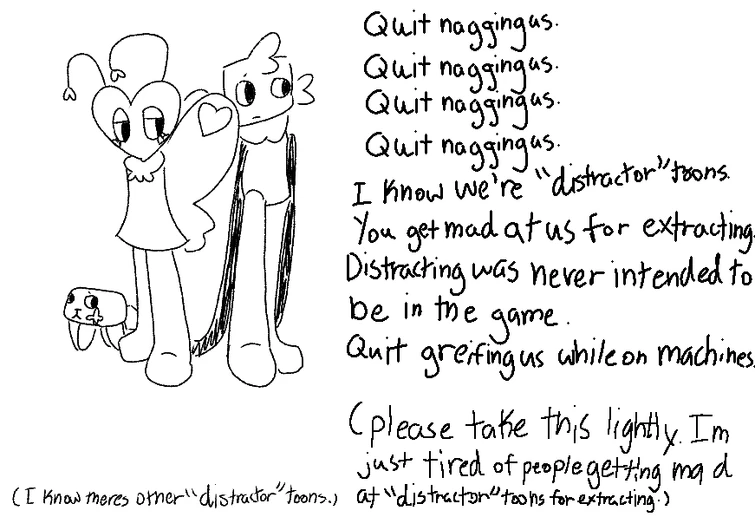 Quit naggingus.
Quit naggingus.
Quit naggingus.
Quit naggingus.
I know we're "distractor" toons.
You get mad at us for extracting.
Distracting was never intended to
be in the game.
Quit greifing us while on machines.
(please take this lightly. Im
just tired of people getting mad
at "distractor" toons for extracting.)
(I know theres other "distractor" toons.)